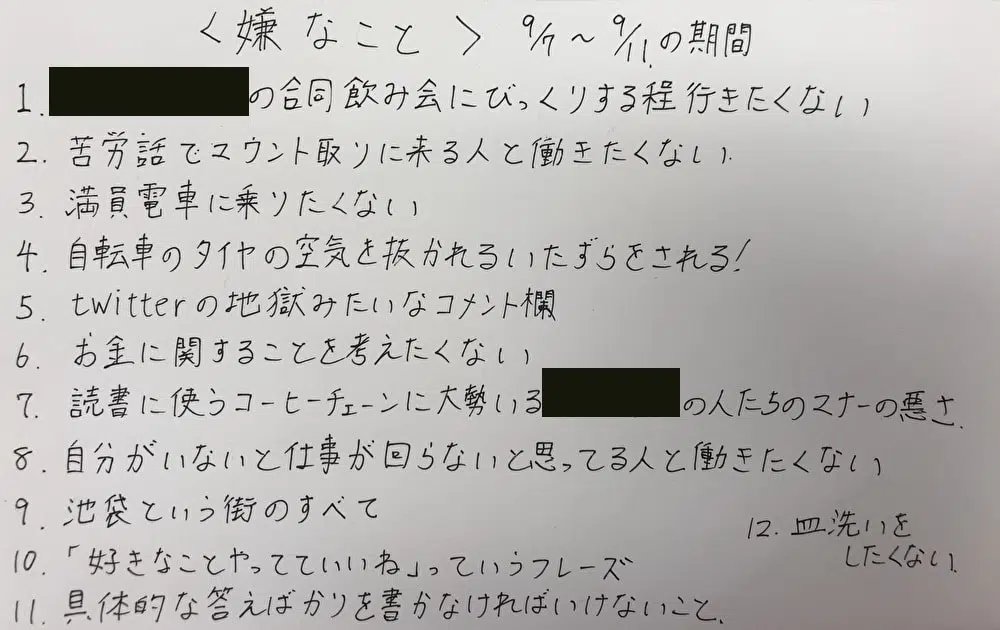 <嫌なこと> 9/7～9/11.の期間
1. の合同飲み会にびっくりする程行きたくない
2. 苦労話でマウント取りに来る人と働きたくない.
3. 満員電車に乗りたくない
4. 自転車のタイヤの空気を抜かれるいたずらをされる!
5. twitterの地獄みたいなコメント欄
6. お金に関することを考えたくない
7. 読書に使うコーヒーチェーンに大勢いる の人たちのマナーの悪さ.
8. 自分がいないと仕事が回らないと思ってる人と働きたくない
9. 池袋という街のすべて
10. 「好きなことやってていいね」っていうフレーズ
11. 具体的な答えばかりを書かなければいけないこと.
12. 皿洗いを
したくない.